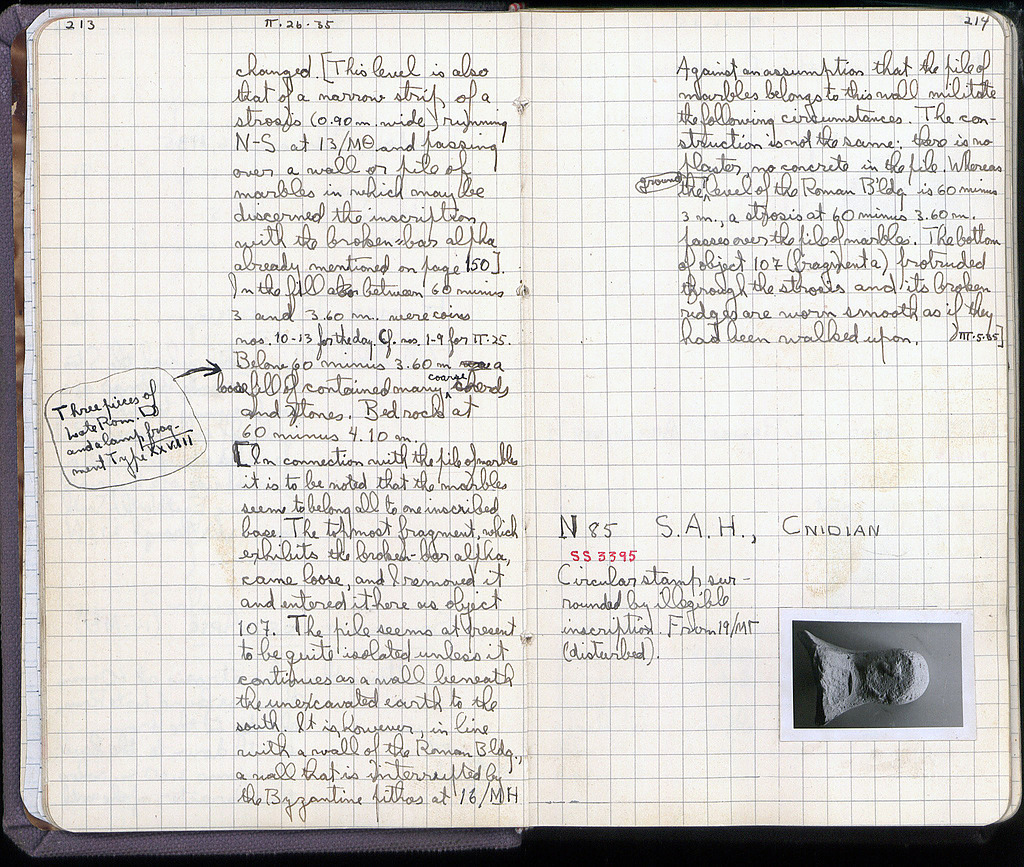 213
II·26·35
changed. [This level is also
that of a narrow strip of a
strosis (0.90 m. wide) running
N-S at 13/ΜΘ and passing
over a wall or pile of
marbles in which may be
discerned the inscription
with the broken-bar alpha
already mentioned on page 150].
In the fill also between 60 minus
3 and 3.60 m. were coins
nos. 10-13 for the day. Cf. nos. 1-9 for II·25.
Below 60 minus 3.60 m a
loose fill contained many coarse sherds
and stones. Bedrock at
60 minus 4.10 m.
Three pieces of
Late Rom.
and a lamp frag-
ment Type XXVIII
[In connection with the pile of marbles
it is to be noted that the marbles
seem to belong all to one inscribed
base. The topmost fragment, which
exhibits the broken-bar alpha,
came loose, and I removed it
and entered it here as object
107. The pile seems at present
to be quite isolated unless it
continues as a wall beneath
the unexcavated earth to the
south. It is, however, in line
with a wall of the Roman Bldg.,
a wall that is interrupted by
the Byzantine pithos at 16/ΜΗ
214
Against an assumption that the pile of
marbles belongs to this wall militate
the following circumstances. The con-
struction is not the same: there is no
plaster, no concrete in the pile. Whereas
the ground level of the Roman B'ldg is 60 minus
3 m., a strosis at 60 minus 3.60 m.
passes over the pile of marbles. The bottom
of object 107 (fragment a) protruded
through the strosis and its broken
ridges are worn smooth as if they
had been walked upon. III·5·35]
N 85 S.A.H., CNIDIAN
SS 3395
Circular stamp sur-
rounded by illegible
inscription. From 19/ΜΓ
(disturbed).